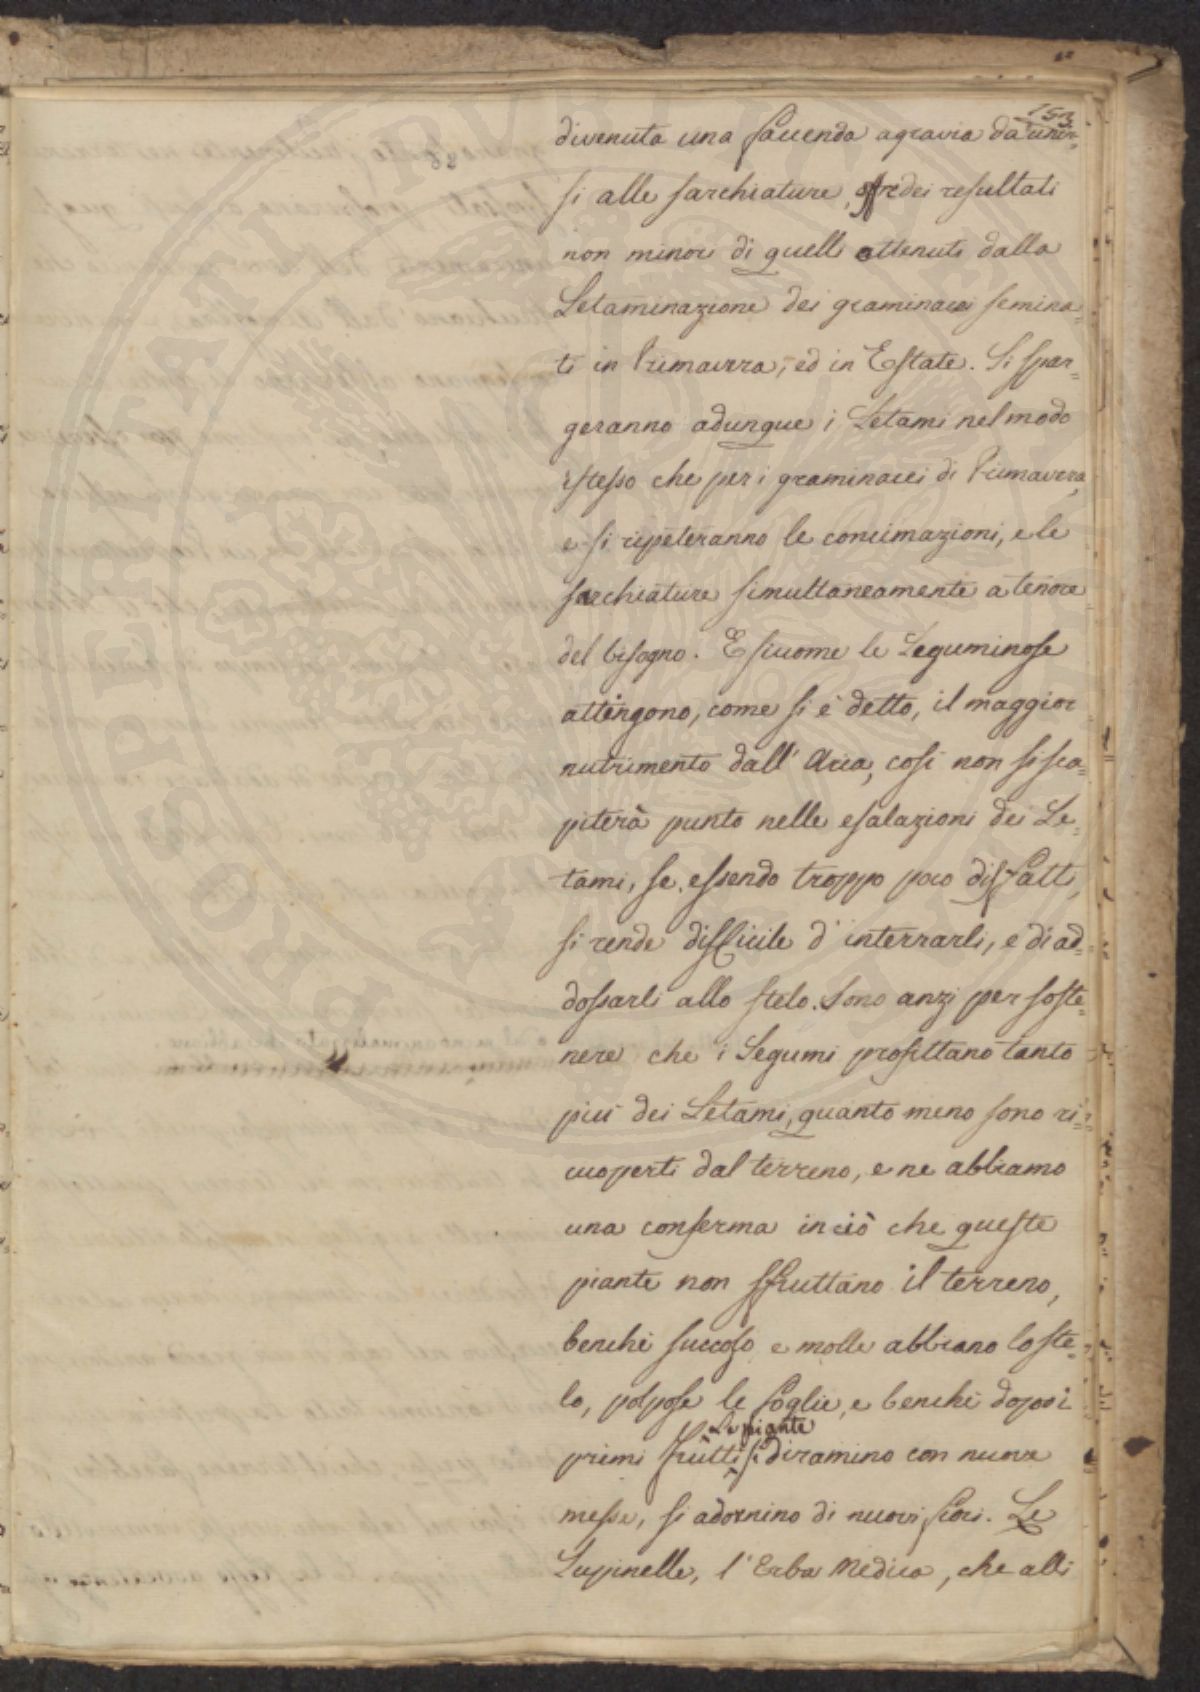 153
divenuta una faccenda agraria da unir=
si alle sarchiature, dei resultati
non minori di quelli ottenuti dalla
Letaminazione dei graminacei semina=
ti in Primavera, ed in Estate. Si spar=
geranno adunque i Letami nel modo
istesso che per i graminacei di Primavera,
e si ripeteranno le concimazioni, e le
sarchiature simultaneamente a tenore
del bisogno. E siccome le Leguminose
attingono, come si è detto, il maggior
nutrimento dall' Aria, così non si sca=
piterà punto nelle esalazioni dei Le=
tami, se, essendo troppo poco disfatti,
si rende difficile d' interrarli, e di ad=
dossarli allo stelo. Sono anzi per soste=
nere che i Legumi profittano tanto
più dei Letami, quanto meno sono ri=
cuoperti dal terreno, e ne abbiamo
una conferma in ciò che queste
piante non sfruttano il terreno,
benchè succoso e molle abbiano lo ste=
lo, polpose le foglie, e benchè dopo i
Le piante
primi frutti si diramino con nuove
messe, si adornino di nuovi fiori. Le
Lupinelle, l' Erba Medica, che alli
PROSPERITATI PUBLICAE